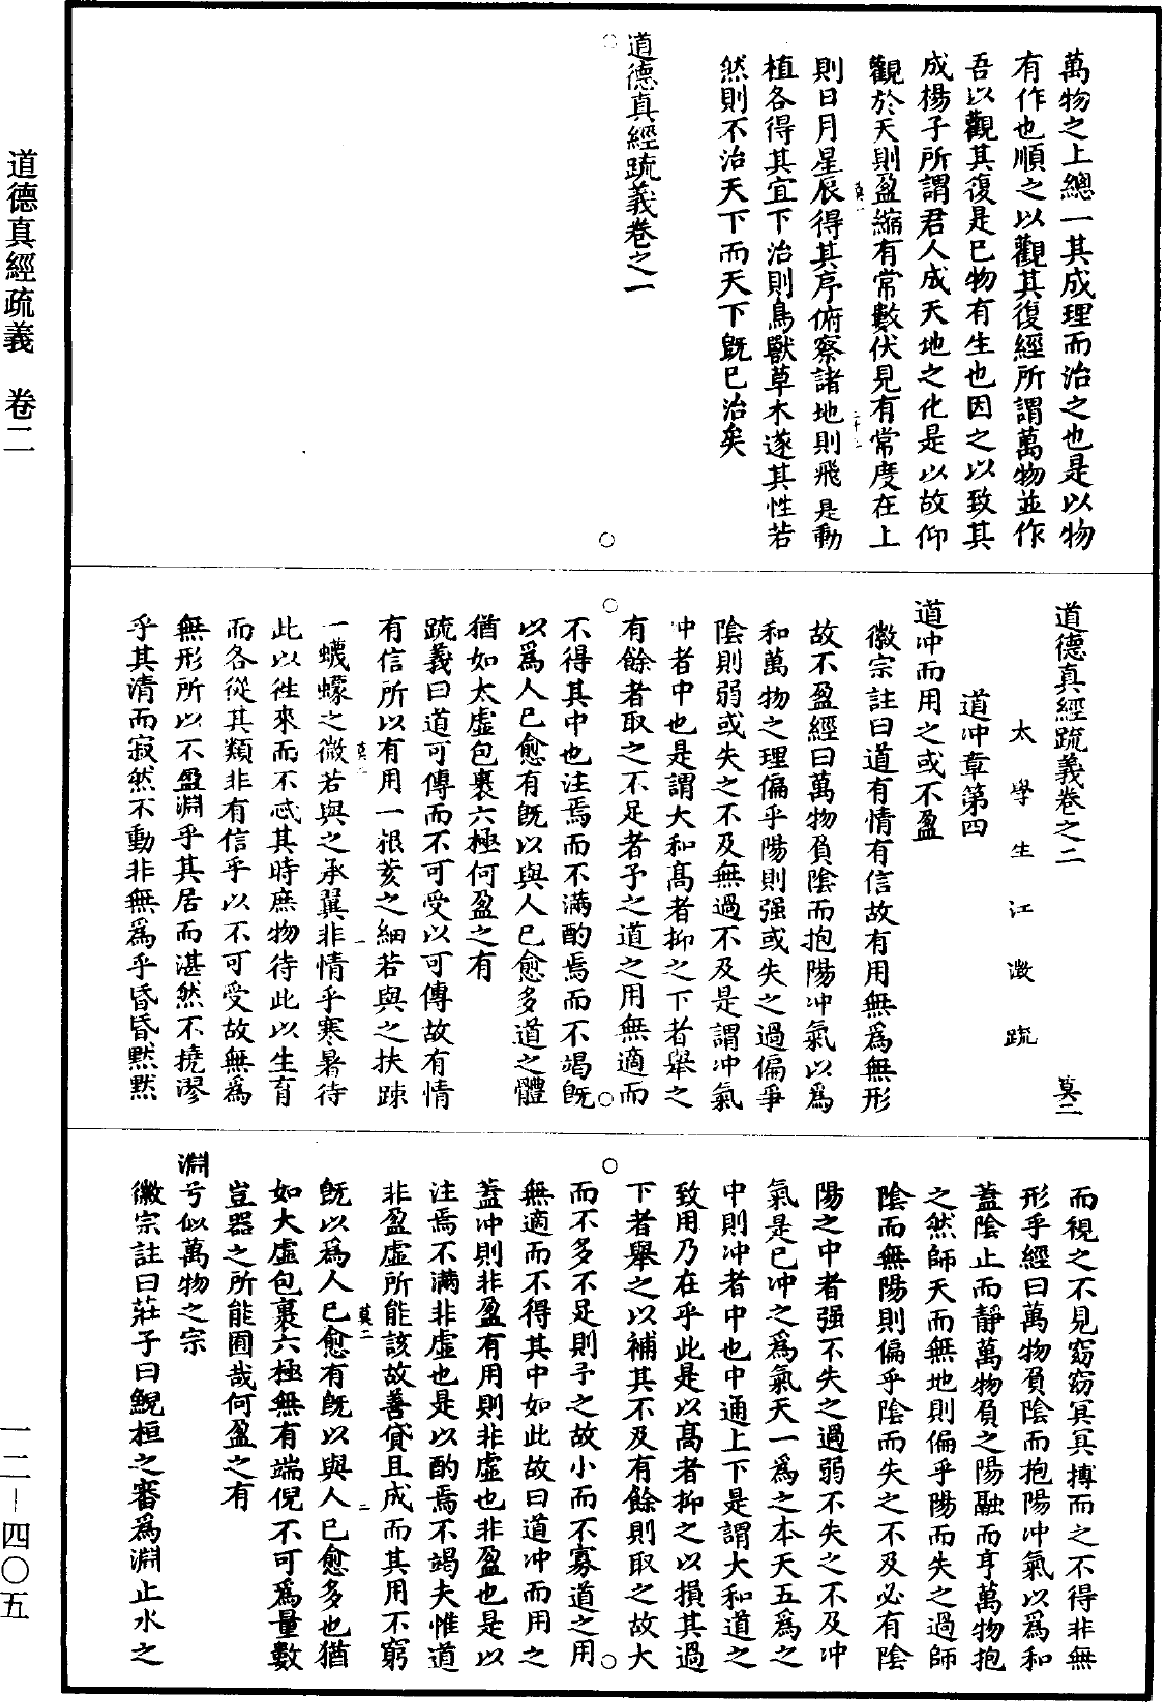 道德真經疏義　卷二
一二—四〇五
萬物之上總一其成理而治之也是以物
有作也順之以觀其復經所謂萬物並作
吾以觀其復是已物有生也因之以致其
成楊子所謂君人成天地之化是以故仰
觀於天則盈縮有常數伏見有常度在上
則日月星辰得其序俯察諸地則飛是動
植各得其宜下治則鳥獸草木遂其性若
然則不治天下而天下旣已治矣
道德真經疏義卷之一
道德真經疏義卷之二　莫二
太學生江澂疏
道冲章第四
道冲而用之或不盈
徽宗註曰道有情有信故有用無爲無形
故不盈經曰萬物負陰而抱陽冲氣以爲
和萬物之理偏乎陽則强或失之過偏乎
陰則弱或失之不及無過不及是謂冲氣
冲者中也是謂大和高者抑之下者舉之
有餘者取之不足者予之道之用無適而
不得其中也注焉而不滿酌焉而不竭旣
以爲人已愈有旣以與人已愈多道之體
猶如太虛包裹六極何盈之有
疏義曰道可傳而不可受以可傳故有情
有信所以有用一根荄之細若與之扶踈
一蠛蠓之微若與之承翼非情乎寒暑待
此以徃來而不忒其時庶物待此以生育
而各從其類非有信乎以不可受故無爲
無形所以不盈淵乎其居而湛然不撓漻
乎其清而寂然不動非無爲乎昏昏黙黙
而視之不見窈窈冥冥搏而之不得非無
形乎經曰萬物負陰而抱陽冲氣以爲和
蓋陰止而靜萬物負之陽融而亨萬物抱
之然師天而無地則偏乎陽而失之過師
陰而無陽則偏乎陰而失之不及必有陰
陽之中者强不失之過弱不失之不及冲
氣是已冲之爲氣天一爲之本天五爲之
中則冲者中也中通上下是謂大和道之
致用乃在乎此是以高者抑之以損其過
下者舉之以補其不及有餘則取之故大
而不多不足則予之故小而不寡道之用
無適而不得其中如此故曰道冲而用之
蓋冲則非盈有用則非虛也非盈也是以
注焉不滿非虛也是以酌焉不竭夫惟道
非盈虛所能該故善貸且成而其用不窮
旣以爲人已愈有旣以與人已愈多也猶
如大虛包裹六極無有端倪不可爲量數
豈器之所能囿哉何盈之有
淵兮似萬物之宗
徽宗註曰莊子曰鯢桓之審爲淵止水之